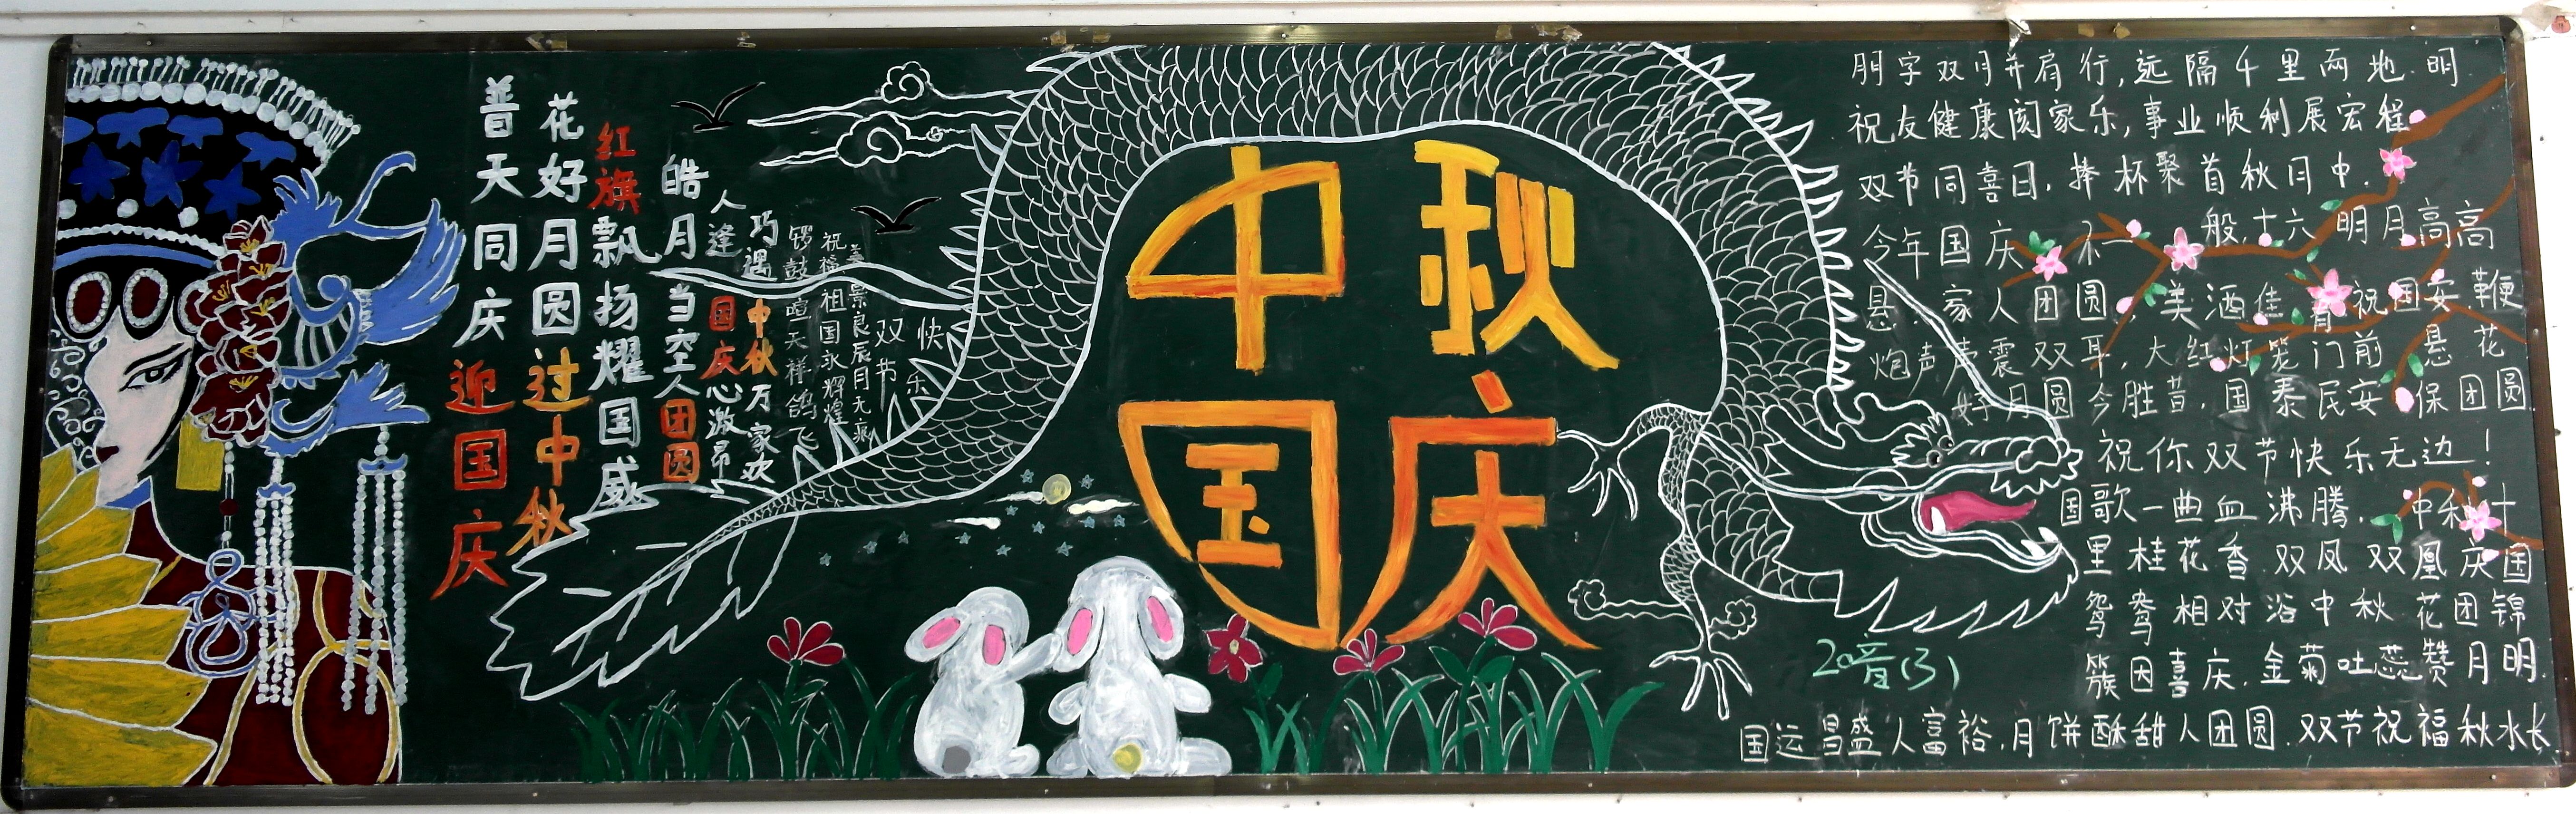 普天同庆迎国庆
花好月圆过中秋
红旗飘扬耀国威
皓月当空人团圆
人逢国庆心激昂
巧遇中秋万家欢
锣鼓喧天祥鸽飞
祝福祖国永辉煌
美景良辰月无
双节
快乐
中秋
国庆
朋字双月并肩行,远隔千里两地明
祝友健康阂家乐,事业顺利展宏程
双节同喜日,捧杯聚首秋月中.
今年国庆不一般,十六明月高高
悬,家人团圆,美酒佳肴祝国安,鞭
炮声声震双耳,大红灯笼门前悬花
好月圆今胜昔,国泰民安保团圆
祝你双节快乐无边!
国歌一曲血沸腾,中秋十
里桂花香双凤双凰庆国
鸳鸯相对浴中秋花团锦
簇因喜庆,金菊吐蕊赞月明.
国运昌盛人富裕,月饼酥甜人团圆双节祝福秋水长
(3)